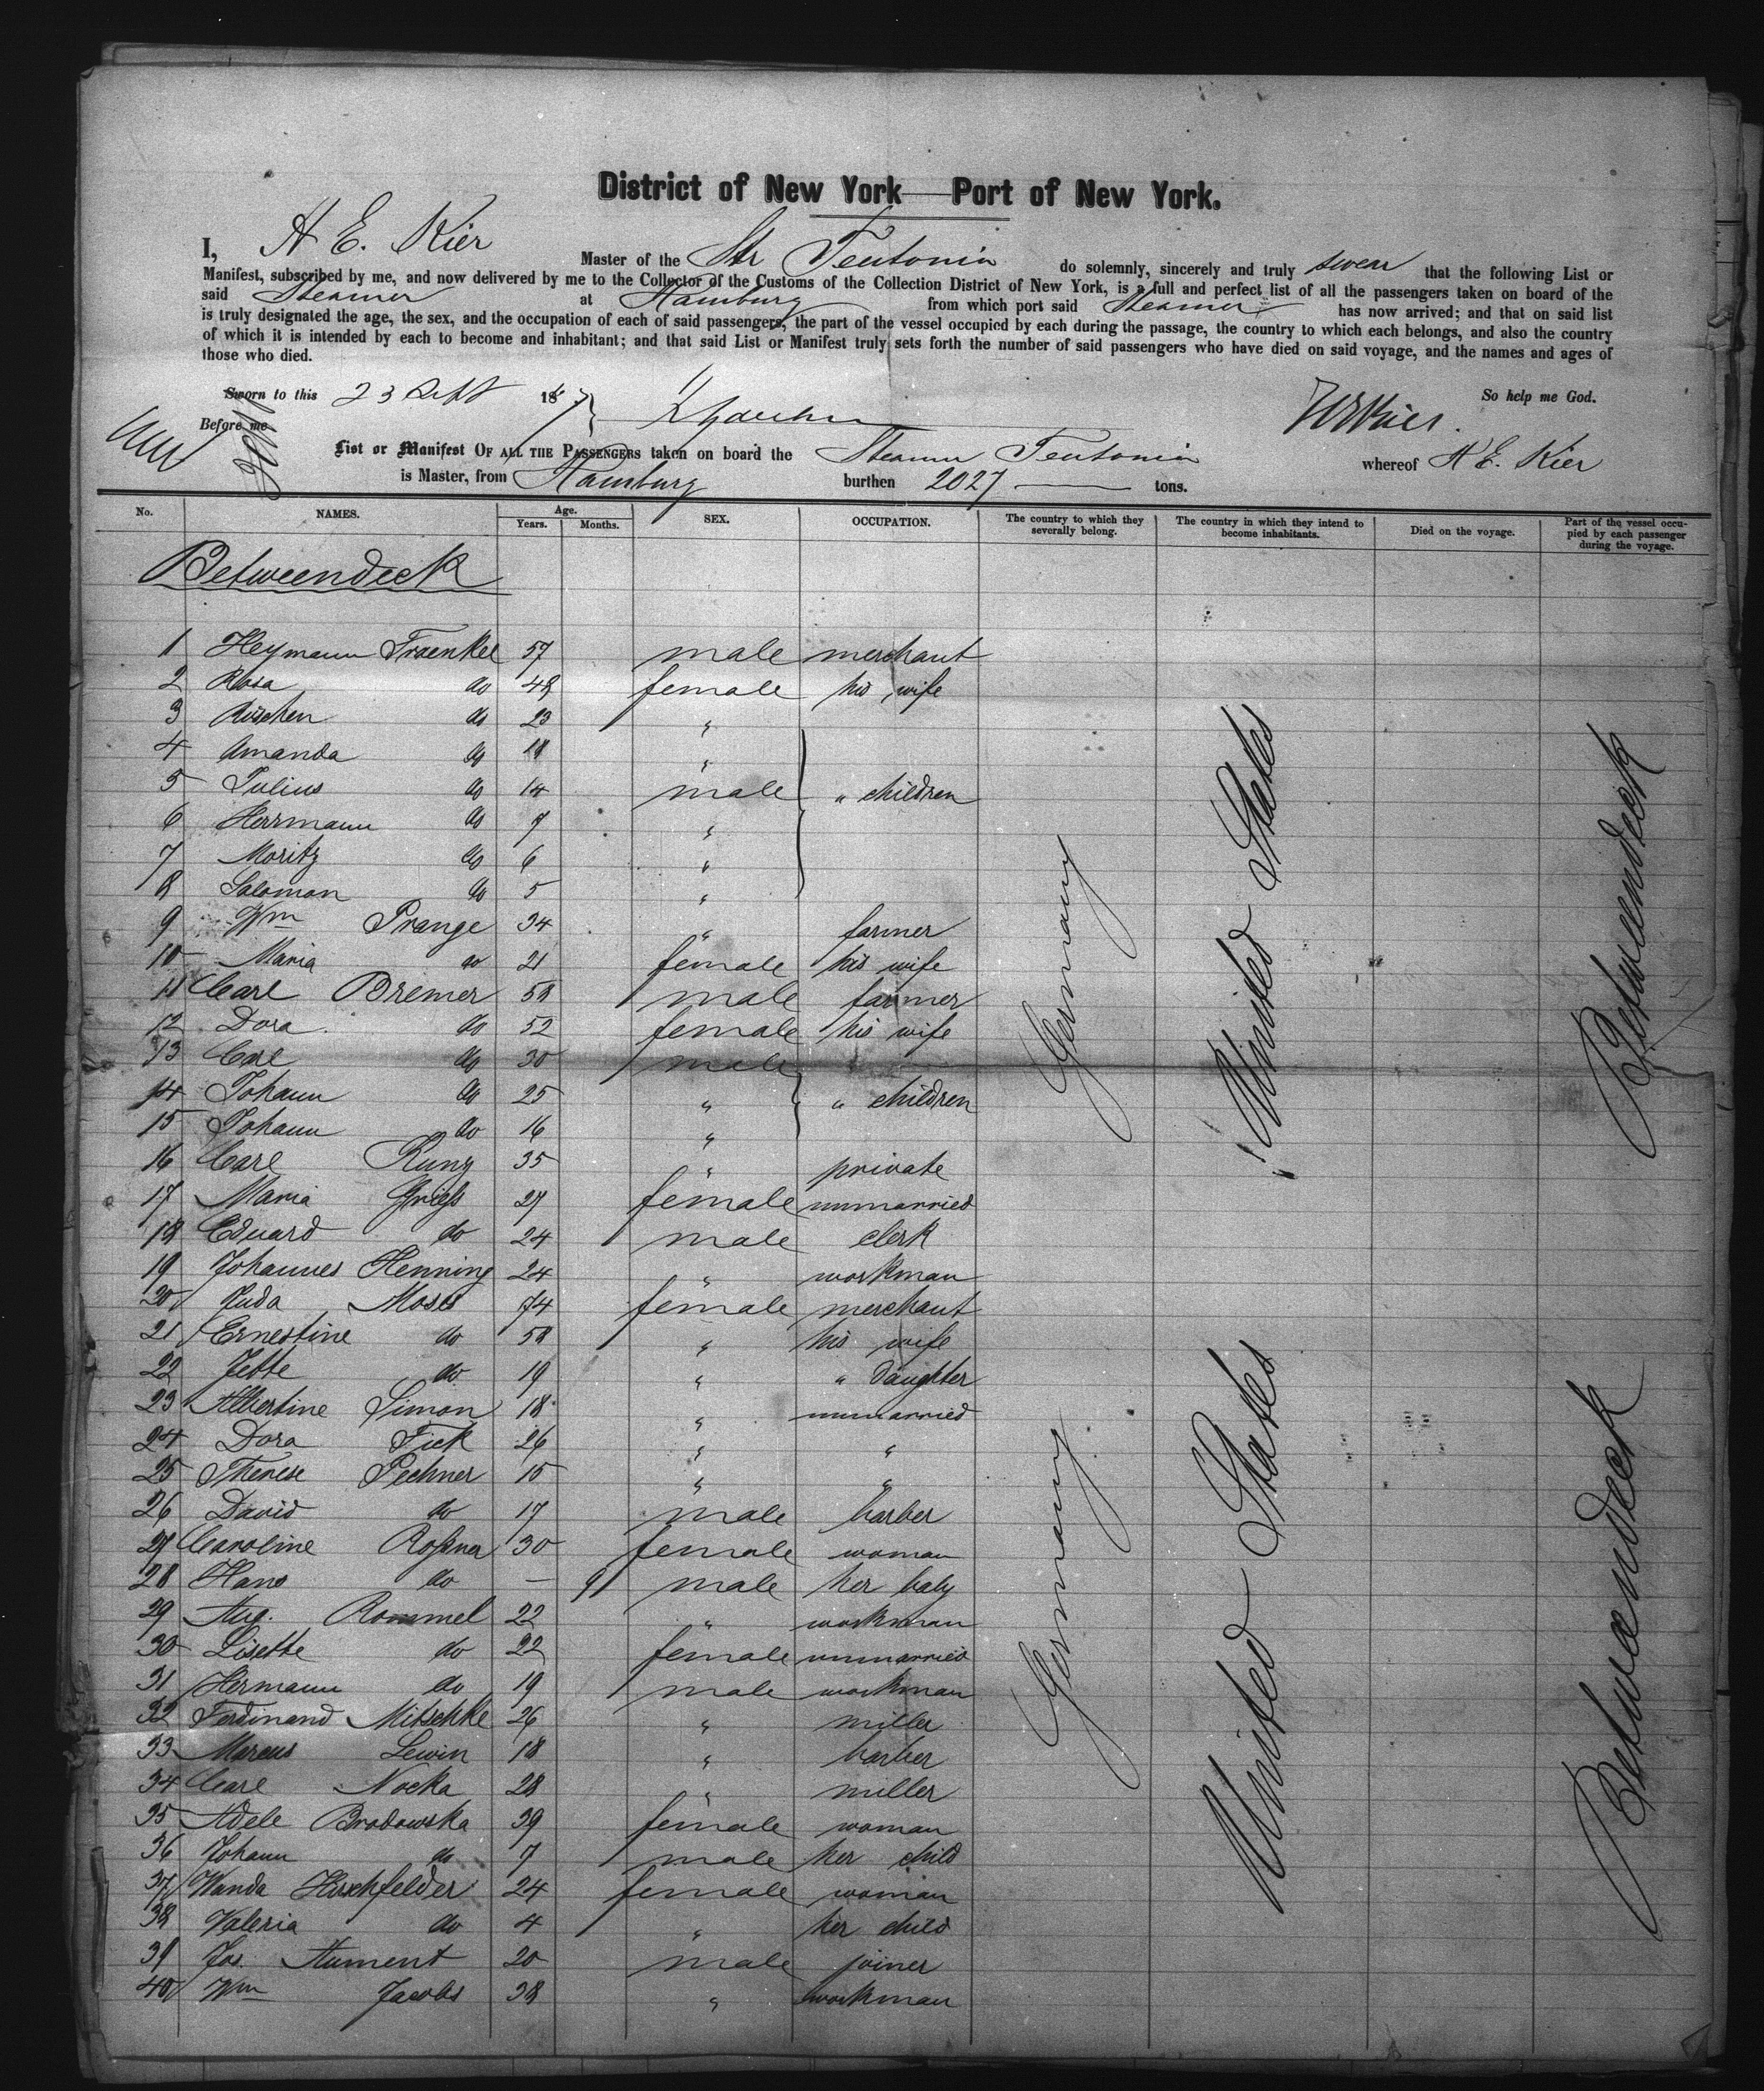 District of New York — Port of New York.
I, H E. Kier Master of the Str Teutonia do solemnly, sincerely and truly swear that the following List or
Manifest, subscribed by me, and now delivered by me to the Collector of the Customs of the Collection District of New York, is a full and perfect list of all the passengers taken on board of the
said Steamer at Hamburg from which port said Steamer has now arrived; and that on said list
is truly designated the age, the sex, and the occupation of each of said passengers, the part of the vessel occupied by each during the passage, the country to which each belongs, and also the country
of which it is intended by each to become and inhabitant; and that said List or Manifest truly sets forth the number of said passengers who have died on said voyage, and the names and ages of
those who died.
Sworn to this 23 Sept 187 So help me God.
Before me HEKier.
List or Manifest OF ALL THE PASSENGERS taken on board the Steamer Teutonia whereof H E. Kier
is Master, from Hamburg burthen 2027 — tons.
No. NAMES. Age. Years. Months. SEX. OCCUPATION. The country to which they severally belong. The country in which they intend to become inhabitants. Died on the voyage. Part of the vessel occupied by each passenger during the voyage.
Betweendeck
1 Heymann Fraenkel 57 male merchant
2 Rosa do 48 female his wife
3 Röschen do 23 "
4 Amanda do 18 "
5 Julius do 14 male " children
6 Herrmann do 9 "
7 Moritz do 6 "
8 Salomon do 5 "
9 Wm Prange 34 " farmer
10 Maria do 21 female his wife
11 Carl Bremer 58 male farmer
12 Dora do 52 female his wife
13 Carl do 30 male
14 Johann do 25 " " children
15 Johann do 16 "
16 Carl Kunz 35 " private
17 Maria Grieß 27 female unmarried
18 Eduard do 24 male clerk
19 Johannes Henning 24 " workman
20 Juda Moses 74 female merchant
21 Ernestine do 58 " his wife
22 Jette do 19 " " daughter
23 Albertine Simon 18 " unmarried
24 Dora Fick 26 " "
25 Therese Pechner 15 " "
26 David do 17 male barber
27 Caroline Roßna 30 female woman
28 Hans do — 9 male her baby
29 Aug. Rommel 22 " workman
30 Lisette do 22 female unmarried
31 Hermann do 19 male workman
32 Ferdinand Mitschke 26 " miller
33 Marcus Lewin 18 " barber
34 Carl Nocka 28 " miller
35 Adele Brodowska 39 female woman
36 Johann do 7 male her child
37 Wanda Hirschfelder 24 female woman
38 Valeria do 4 " her child
39 Jos. Aument 20 male joiner
40 Wm Jacobs 38 " workman
Germany
United States
Betweendeck
Germany
United States
Betweendeck